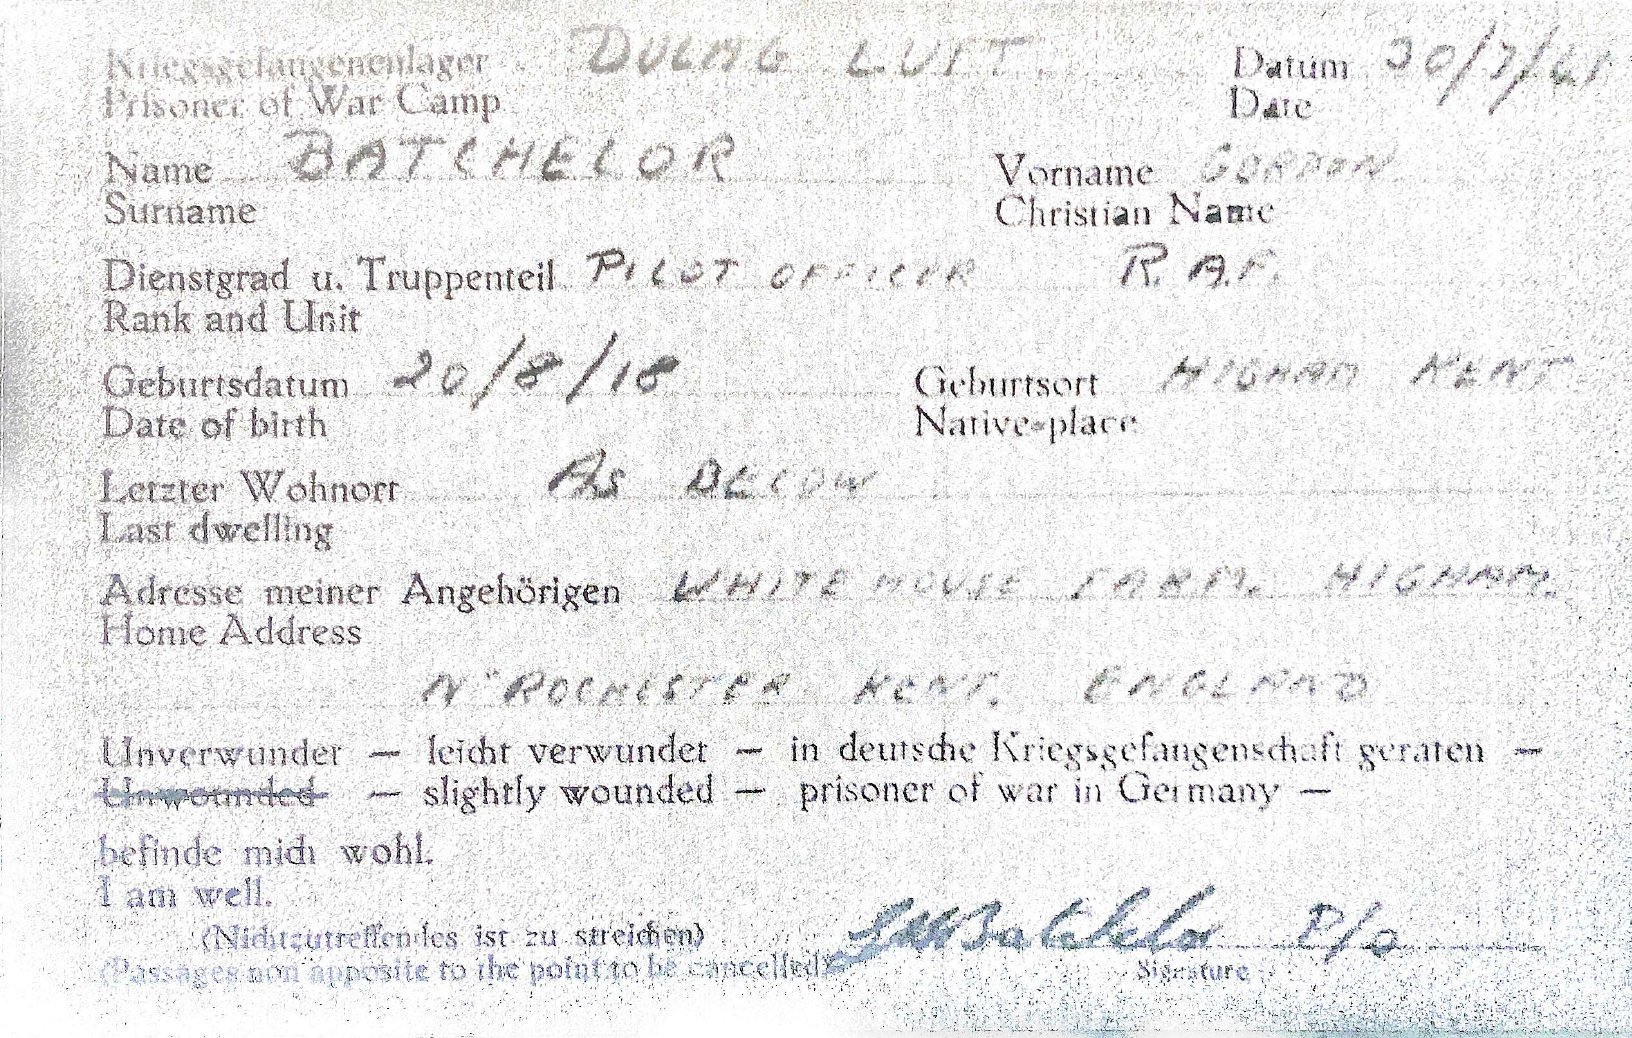 Kriegsgefangenenlager DULAG LUFT. Datum 30/7/41
Prisoner of War Camp Date
Name BATCHELOR Vorname GORDON
Surname Christian Name
Dienstgrad u. Truppenteil PILOT OFFICER R.A.F.
Rank and Unit
Geburtsdatum 20/8/18 Geburtsort HIGHAM KENT
Date of birth Native-place
Letzter Wohnort AS BELOW
Last dwelling
Adresse meiner Angehörigen WHITE HOUSE FARM. HIGHAM.
Home Address
Nr ROCHESTER KENT. ENGLAND
Unverwundet — leicht verwundet — in deutsche Kriegsgefangenschaft geraten —
Unwounded — slightly wounded — prisoner of war in Germany —
befinde mich wohl.
I am well.
(Nichtzutreffendes ist zu streichen) Batchelor P/O
(Passages non apposite to the point to be cancelled) Signature